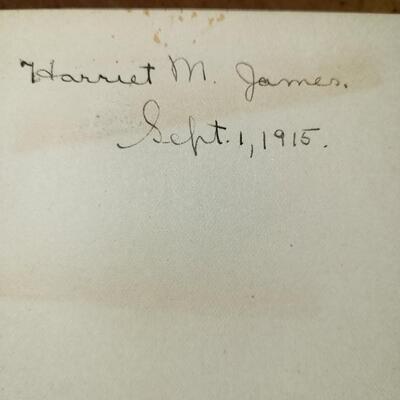 Harriet M. James.
Sept. 1, 1915.